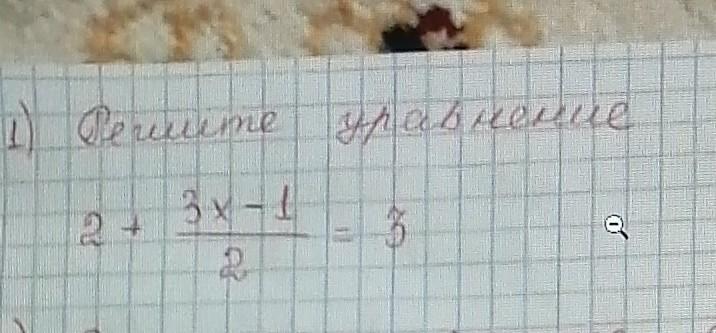 1) Решите уравнение
2 + \frac{3x-1}{2} = 3